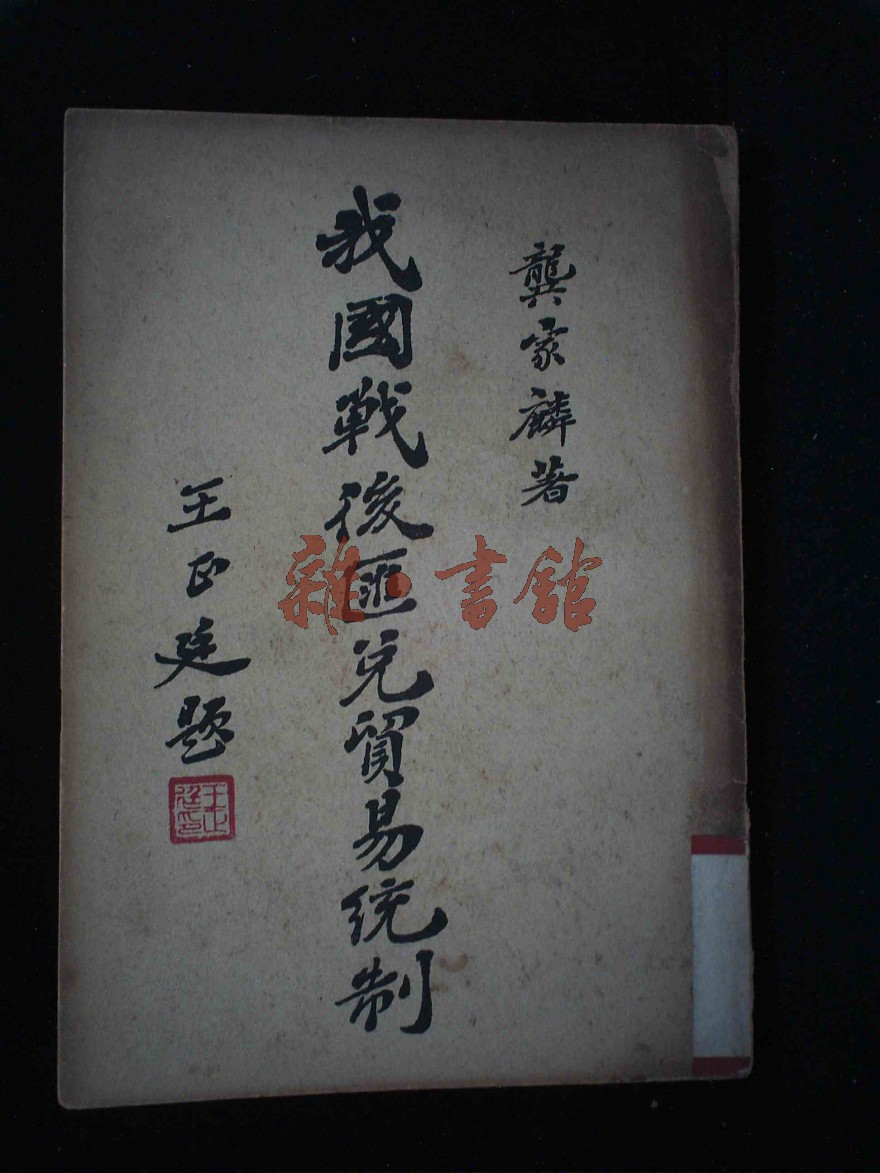 龔家麟著
我國戰後匯兌貿易統制
王正廷題
王正廷印
雜·書館